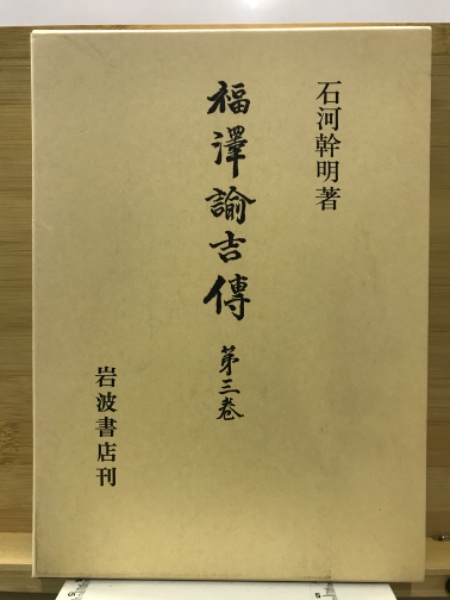 石河幹明著
福澤諭吉傳
第三巻
岩波書店刊